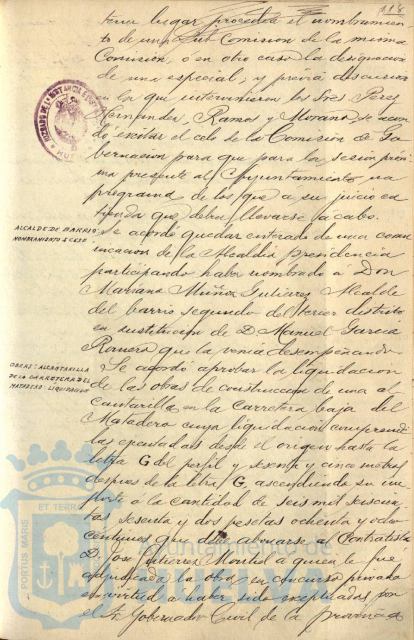 118
tener lugar procedía el nombramien
to de una Sub Comision de la misma
Comision, ó en otro caso la designacion
de una especial; y previa discusion
en la que intervinieron los Sres. Perez
Hernandez, Ramos y Morano se acor
dó excitar el celo de la Comision de Go
bernacion para que para la sesion próxi
ma presente al Ayuntamiento un
programa de los que a su juicio en
tienda que deben llevarse a cabo.
ALCALDE DE BARRIO
NOMBRAMIENTO Y CESE
Se acordó quedar enterado de una comu
nicacion de la Alcaldia Presidencia
participando haber nombrado a Don
Mariano Muñoz Gutierrez Alcalde
del barrio segundo del tercer distrito
en sustitucion de D. Manuel Garcia
Romero que la venia desempeñando.
OBRAS: ALCANTARILLA
DE LA CARRETERA DEL
MATADERO: LIQUIDACION
Se acordó aprobar la liquidacion
de las obras de construccion de una al
cantarilla en la Carretera baja del
Matadero cuya liquidacion comprende
las ejecutadas desde el origen hasta la
letra G del perfil y sesenta y cinco metros
despues de la letra G, ascendiendo su im
porte á la cantidad de seis mil seiscien
tas sesenta y dos pesetas ochenta y ocho
centimos que debe abonarse al Contratista
D. Jose Gutierrez Montiel a quien le fue
adjudicada la obra en concurso privado
en virtud a haber sido exceptuadas por
el Sr. Gobernador Civil de la provincia
PORTUS MARIS
ET TERRAE
Ayuntamiento de